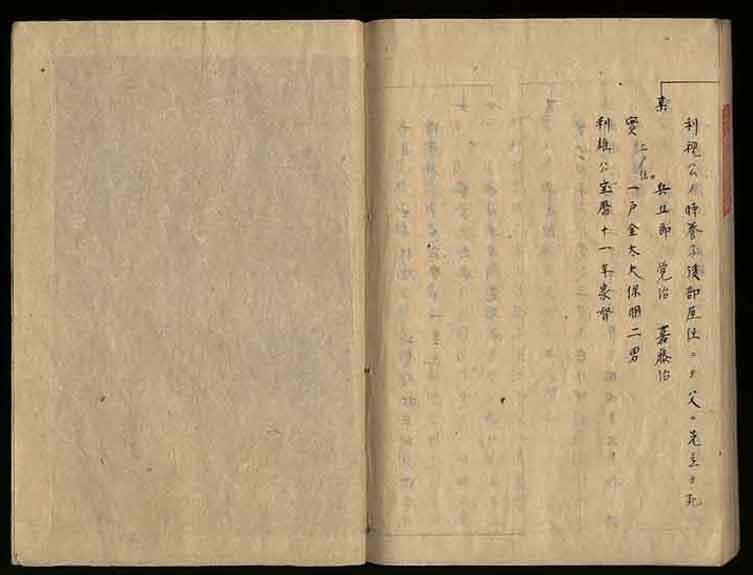 利視公ノ時養子後部屋住ニテ父ニ先立テ死
某 兵五郎 覚治 嘉藤治
実ニノ伝 一戸金太夫保明二男
利雄公宝暦十一年家督